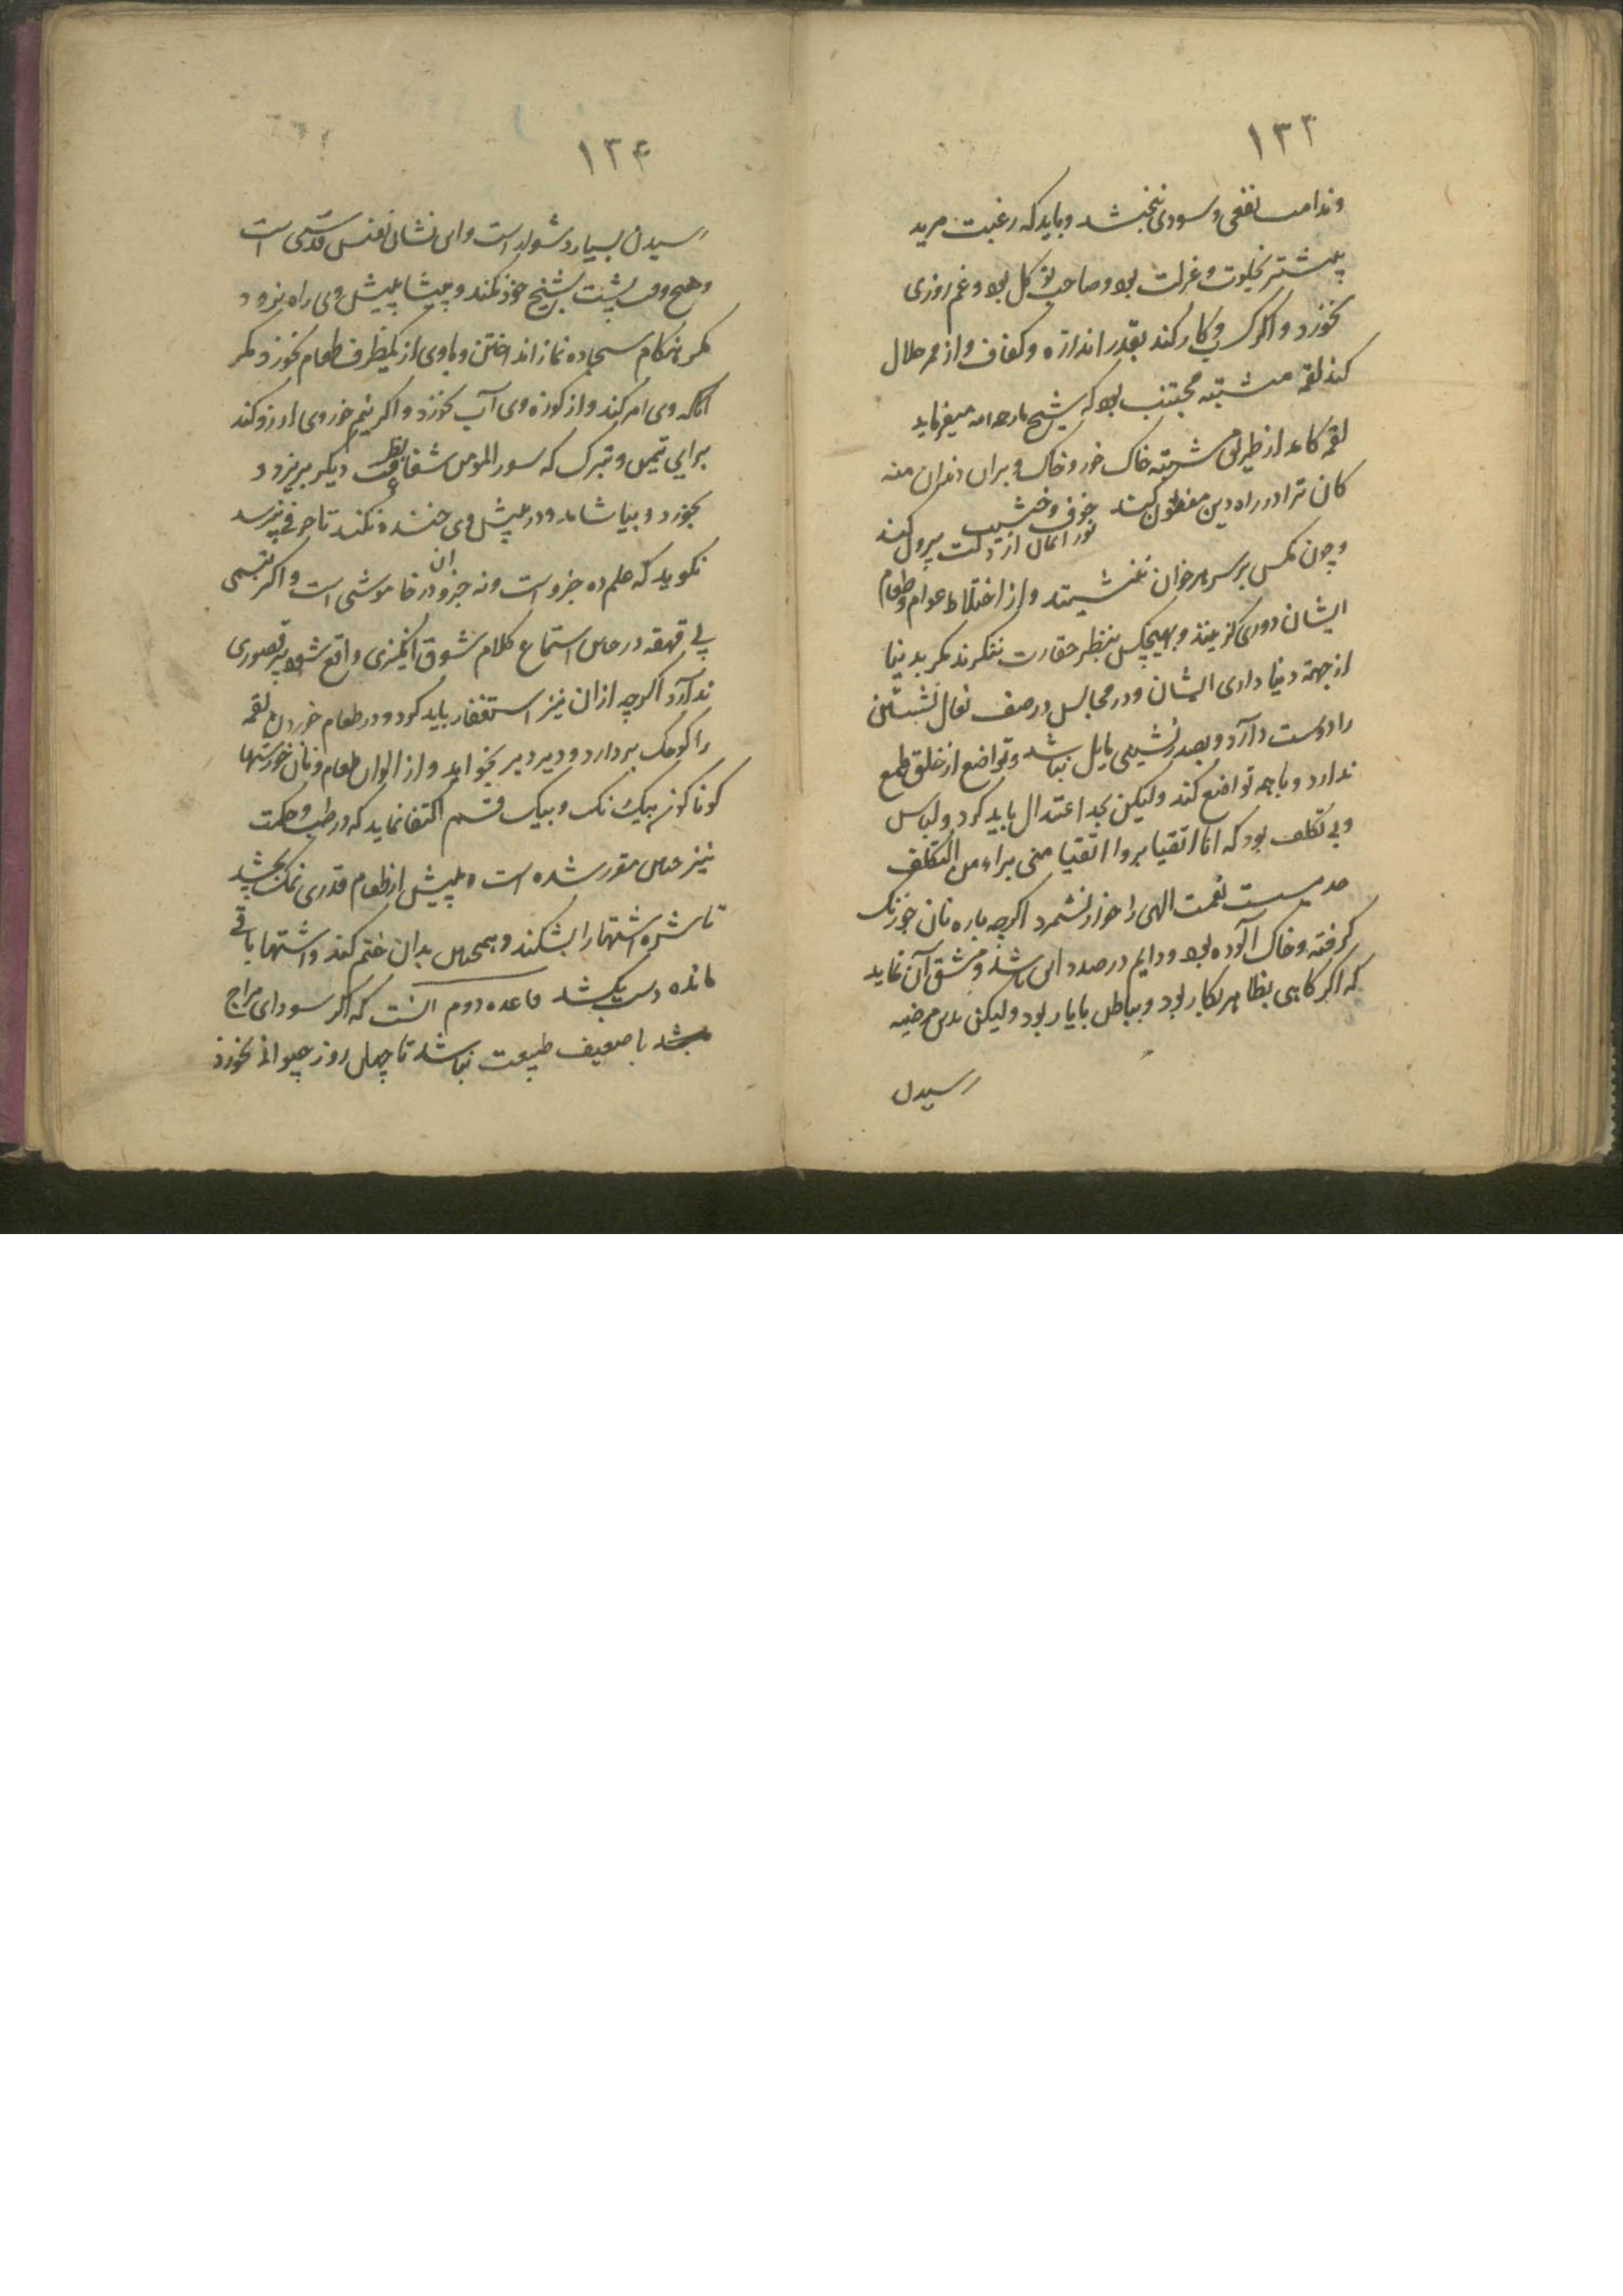 ۱۳۳
وندامت نفعی و سودی نبخشد و باید که رغبت مرید
بیشتر بخلوت و عزلت بود و صاحب توکل بود و غم روزی
نخورد و اگر کسب و کار کند بقدر اندازه و کفاف و از ممر حلال
کند لقمه مشتبه مجتنب بود که شیخ میفرماید
لقمه کامد از طریق مشتبه خاک خور و خاک و بران دندان منه
کان ترا در راه دین مفتون کند خوف و خشیت
نور ایمان از دلت بیرون کند
و چون مگس بر سر هر خوان ننشیند و از اختلاط عوام و طعام
ایشان دوری گزیند و بهیچکس بنظر حقارت ننگرند مگر بدنیا
از جهة دنیا داری ایشان و در مجالس در صف نعال نشستن
را دوست دارد و بصدر نشینی مایل نباشد و تواضع از خلق طمع
ندارد و با همه تواضع کند ولیکن بحد اعتدال باید کرد و لباس
وبی تکلف بود که انا اتقیا بروا اتقیا منی براء من التکلف
حدیست نعمت الهی را خوار نشمرد اگرچه پاره نان جو زنک
گرفته و خاک آلوده بود و دایم درصدد این باشد و مشق آن نماید
که اگر کاهی بظاهر بکار بود و بباطن بایار بود ولیکن بدین مرضیه
رسیدن
۱۳۴
رسیدن بسیار دشوار است و این نشان نفس قدسی است
و هیچ وقت پشت بشیخ خود نکند و پیشاپیش وی راه نرود
مگر هنگام سجاده نماز انداختن و باوی از یکظرف طعام نخورد مگر
آنکه وی امر کند و از کوزه وی آب نخورد و اگر نیم خور وی ارزو کند
برای تیمن و تبرک که سور المومن شفا بظرف دیگر بریزد و
بخورد و بیاشامد و در پیش وی خنده نکند تا حرفی نپرسد
نگوید که علم ده جزو است ونه جزو ان در خاموشی است و اگر تبسمی
بی قهقه در حین استماع کلام شوق انگیزی واقع شود پر قصوری
ندارد اگرچه ازان نیز استغفار باید کرد و در طعام خوردن لقمه
را کوچک بردارد و دیر دیر بخواید و از الوان طعام و نان خورشها
کوناکون بیک نمک و بیک قسم اکتفا نماید که در طب و حکمت
نیز چنین مقرر شده است و پیش از طعام قدری نمک بچشد
تا شره اشتها را بشکند و همچنین بدان ختم کند و اشتها باقی
مانده دست بکشد قاعده دوم انست که اگر سودای مزاج
باشد یا ضعیف طبیعت نباشد تا چهل روز حیوانی نخورد